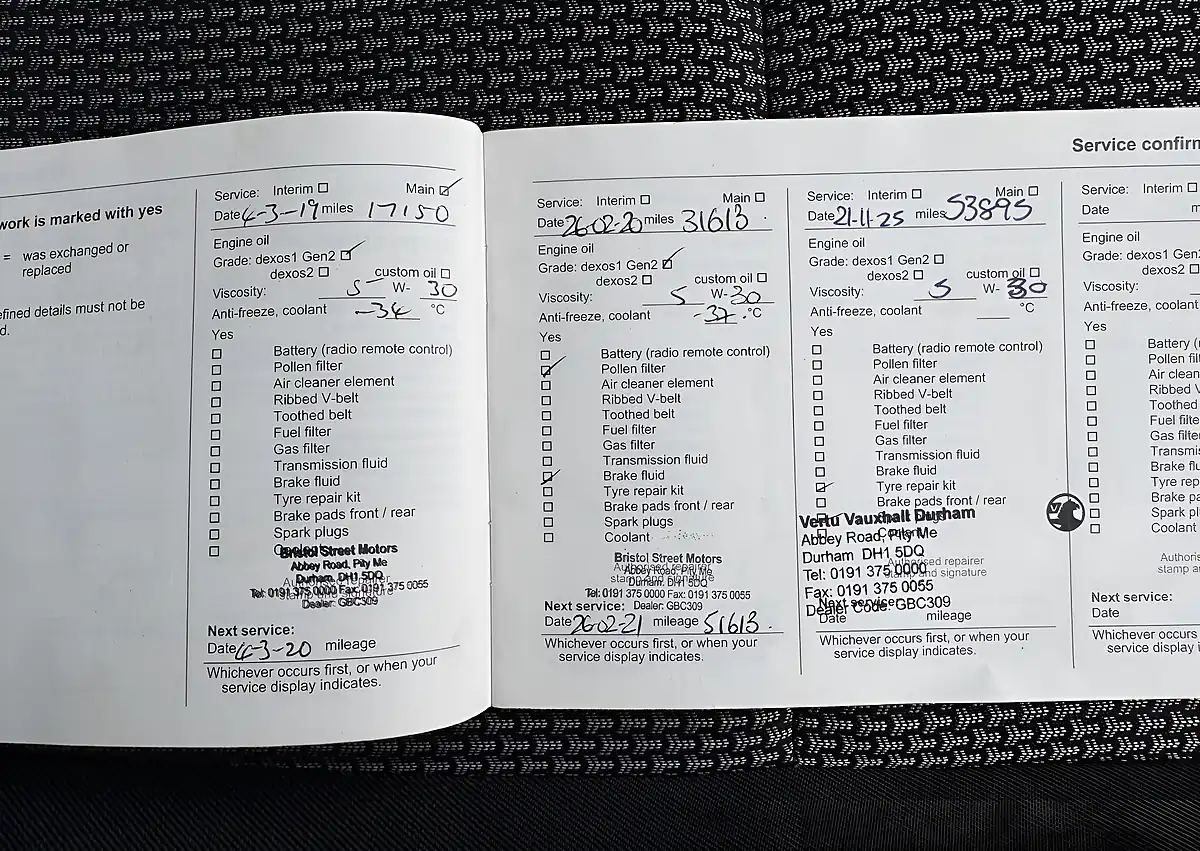 work is marked with yes
= was exchanged or
replaced
efined details must not be
d.
Service: Interim Main
Date 4-3-19 miles 17150
Engine oil
Grade: dexos1 Gen2
dexos2 custom oil
Viscosity: 5 W- 30
Anti-freeze, coolant -34 °C
Yes
Battery (radio remote control)
Pollen filter
Air cleaner element
Ribbed V-belt
Toothed belt
Fuel filter
Gas filter
Transmission fluid
Brake fluid
Tyre repair kit
Brake pads front / rear
Spark plugs
Coolant
Bristol Street Motors
Abbey Road, Pity Me
Durham. DH1 5DQ
Authorised repairer
Tel: 0191 375 0000 Fax: 0191 375 0055
stamp and signature
Dealer: GBC309
Next service:
Date 4-3-20 mileage
Whichever occurs first, or when your
service display indicates.
Service: Interim Main
Date 26-02-20 miles 31613
Engine oil
Grade: dexos1 Gen2
dexos2 custom oil
Viscosity: 5 W-30
Anti-freeze, coolant -37 °C
Yes
Battery (radio remote control)
Pollen filter
Air cleaner element
Ribbed V-belt
Toothed belt
Fuel filter
Gas filter
Transmission fluid
Brake fluid
Tyre repair kit
Brake pads front / rear
Spark plugs
Coolant
Bristol Street Motors
Authorised repairer
Abbey Road, Pity Me
stamp and signature
Durham. DH1 5DQ
Tel: 0191 375 0000 Fax: 0191 375 0055
Dealer: GBC309
Next service:
Date 26-02-21 mileage 51613
Whichever occurs first, or when your
service display indicates.
Service confirm
Service: Interim Main
Date 21-11-25 miles 53895
Engine oil
Grade: dexos1 Gen2
dexos2 custom oil
Viscosity: 5 W- 30
Anti-freeze, coolant °C
Yes
Battery (radio remote control)
Pollen filter
Air cleaner element
Ribbed V-belt
Toothed belt
Fuel filter
Gas filter
Transmission fluid
Brake fluid
Tyre repair kit
Brake pads front / rear
Spark plugs
Vertu Vauxhall Durham
Coolant
Abbey Road, Pity Me
Durham DH1 5DQ
Authorised repairer
Tel: 0191 375 0000
stamp and signature
Fax: 0191 375 0055
Next service:
Dealer Code: GBC309
Date mileage
Whichever occurs first, or when your
service display indicates.
Service: Interim
Date m
Engine oil
Grade: dexos1 Gen
dexos2
Viscosity:
Anti-freeze, coolant
Yes
Battery (r
Pollen filt
Air clean
Ribbed V
Toothed
Fuel filte
Gas filte
Transmis
Brake flu
Tyre rep
Brake pa
Spark plu
Coolant
Authoris
stamp a
Next service:
Date
Whichever occurs firs
service display i